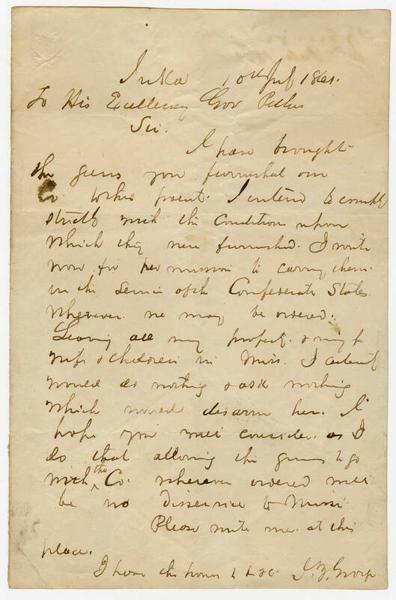 Iuka 10th July 1861.
To His Excellency Gov Pettus
Sir.
I have brought
the guns you furnished our
Co to this point. I intend to comply
strictly with the condition upon
which they were furnished. I write
now for permission to carry them
in the service of the Confederate States
wherever we may be ordered.
Leaving all my property & my
wife & children in Miss. I certainly
would do nothing & ask nothing
which would disarm her. I
hope you will consider as I
do that allowing the guns to go
with the Co. wherever ordered will
be no disservice to Miss.
Please write me at this
place.
I have the honor &